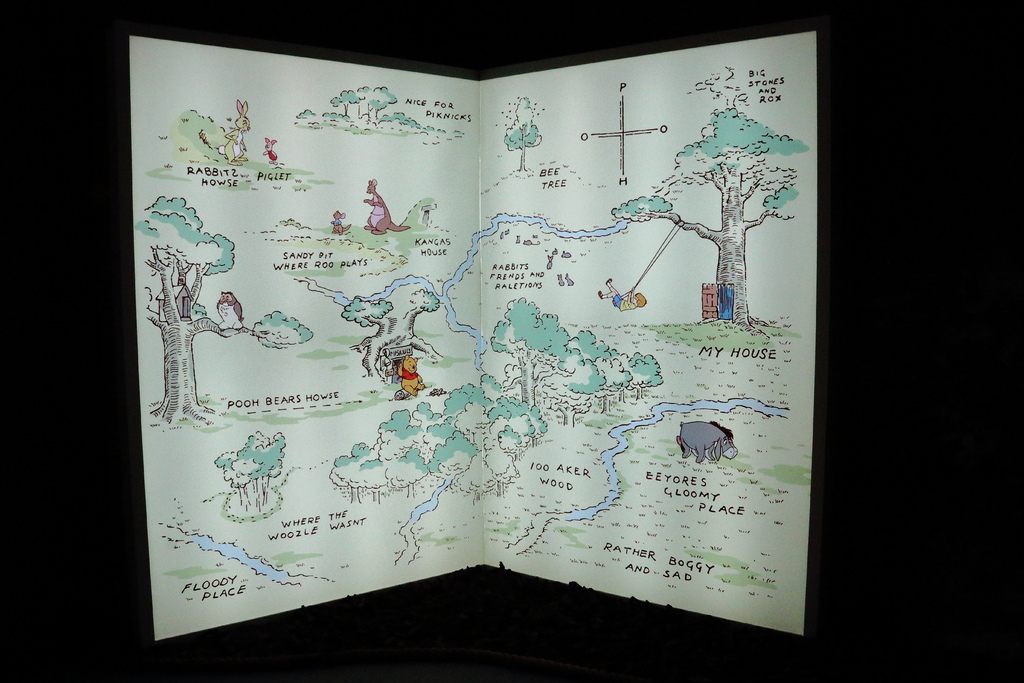 NICE FOR
PIKNICKS
RABBITS
HOWSE
PIGLET
KANGAS
HOUSE
SANDY PIT
WHERE ROO PLAYS
MUSEUM
POOH BEARS HOWSE
WHERE THE
WOOZLE WASNT
FLOODY
PLACE
BIG
STONES
AND
ROX
P
O
O
H
BEE
TREE
RABBITS
FRENDS AND
RALETIONS
MY HOUSE
100 AKER
WOOD
EEYORES
GLOOMY
PLACE
RATHER BOGGY
AND SAD